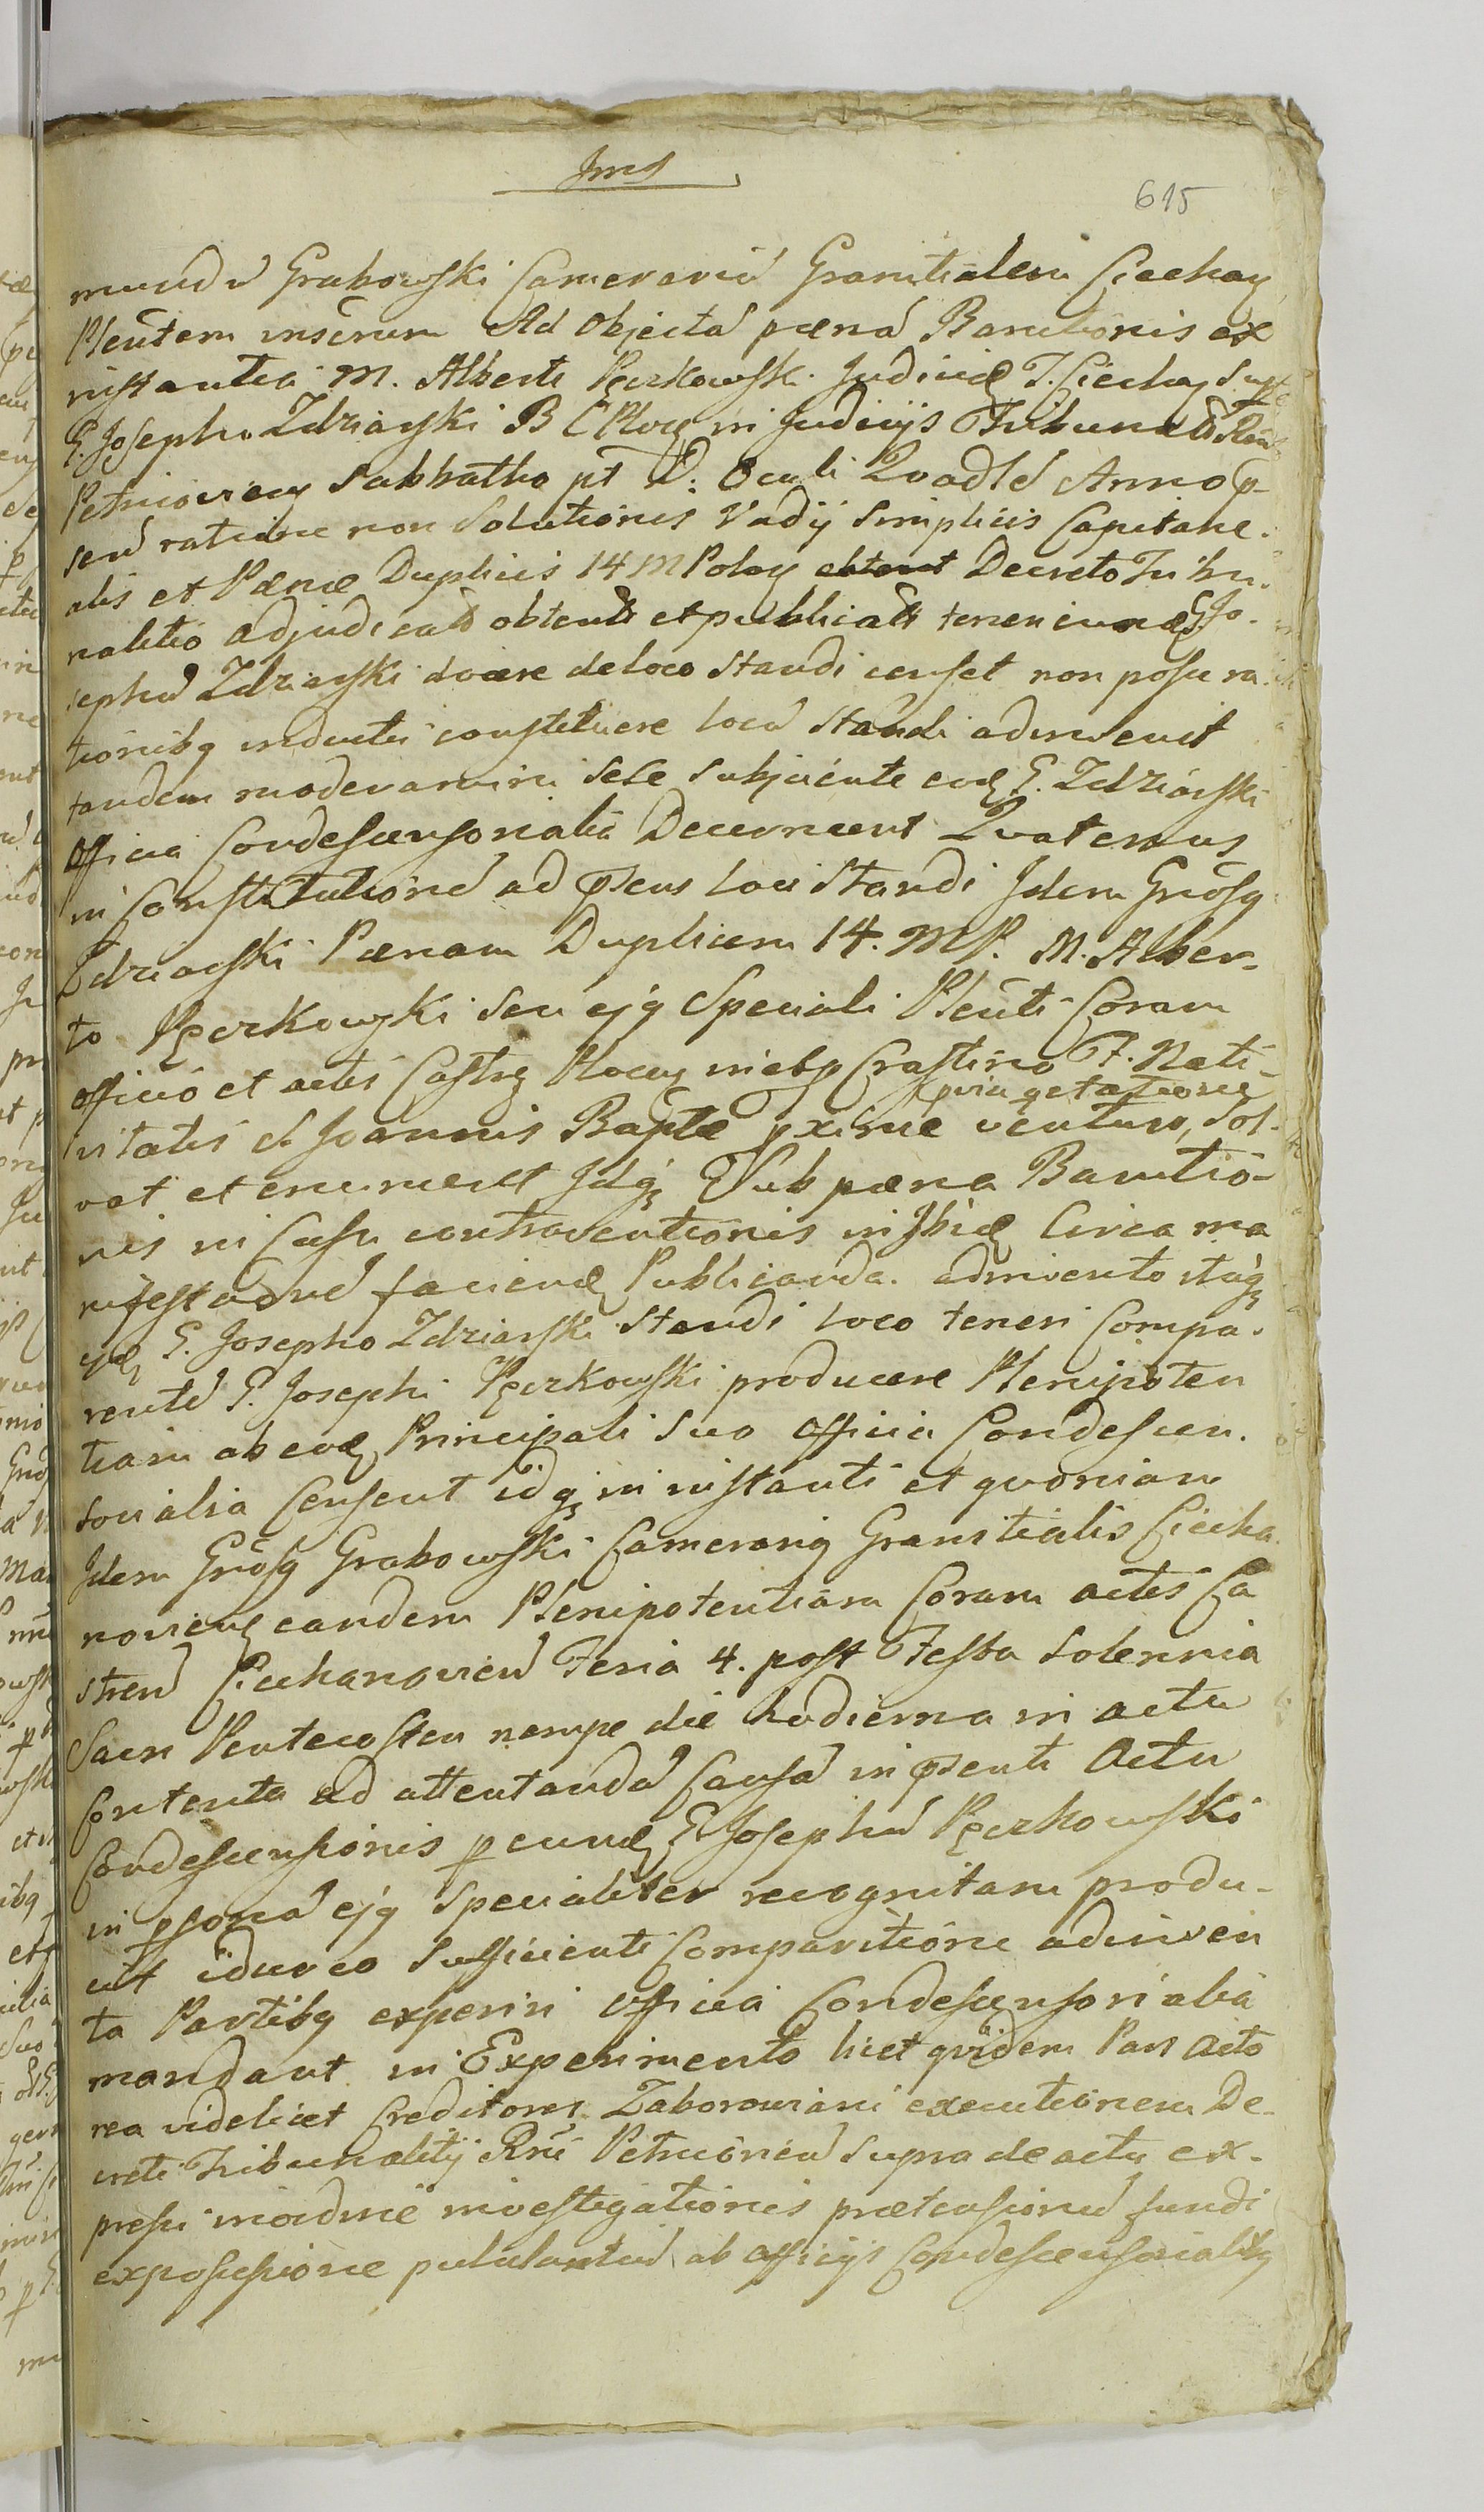 615
mund Grabowski Camerariũ Granitialem Ciechan
Pleñtem Ad Objectã pænã Bannitionis ex
instantia M. Alberti Pęczkowski Judicid T. Ciechan
G. Josepho Zdziarski B C Ploc in Judicijs
Petricovien Sabbatho pt D: Oculi Anno p-
sen ratione non Solutionis Vadij Simplicis Capitane-
alis et Pænæ Duplicis 14 M Polon Decreto Tribu-
nalitio adjudicat obtent et publicat G. Jo-
sephũ Zdziarski docere de loco Standi censet non posse ra
tionibq inductis constituere locũ Standi adinvenit
tandem moderamini Sese Subjiciente eod G. Zdziarski
Officia Condescensorialia Decernunt Quatenus
in Constitutionẽ ad psens loci Standi Idem Gnosq
Zdziarski Pænam Duplicem 14. M P. M. Alber-
to Pęczkowski Seu ejq Speciali Pleñti Coram
officio et actis Castrẽ Plocen Crastino F. Nati-
vitatis S Joannis Baptæ pxime venturo, Sol-
vat et enumeret Idq Sub pæna Bannitio-
nis in Casu contraventionis Circa ma
nifestationẽ faciend Publicanda. adinvento itaq
G. Josepho Zdziarski Standi loco teneri Compa-
rentẽ G. Josephi Pęczkowski producere Plenipoten
tiam ab eod Principali Suo Officia Condescen-
sorialia Censent idq in instanti et quoniam
Idem Gnosq Grabowski Camerariq Granitialis Ciecha
novien eandem Plenipotentiam Coram actis Ca
stren Ciechanovien Feria 4. post Festa Solennia
Sacri Pentecosten nempe die hodierna in actu
Contenta ad attentandã Causã in psenti Actu
Condescensionis p eund G Josephũ Pęczkowski
in psona ejq Specialiter recognitam produ-
xit ideo Sufficienti Comparitione adinven
ta Partibq experiri Officia Condescensorialia
mandant in Experimento licet quidem Pars Acto
rea videlicet Creditores Zaborowiani executionem De-
creti Tribunalitij Rni Petricovien Supra de actu ex-
pressi inordine investigationis prætensionũ fundi
expossessione pululantiũ ab officijs Condescensorialibq